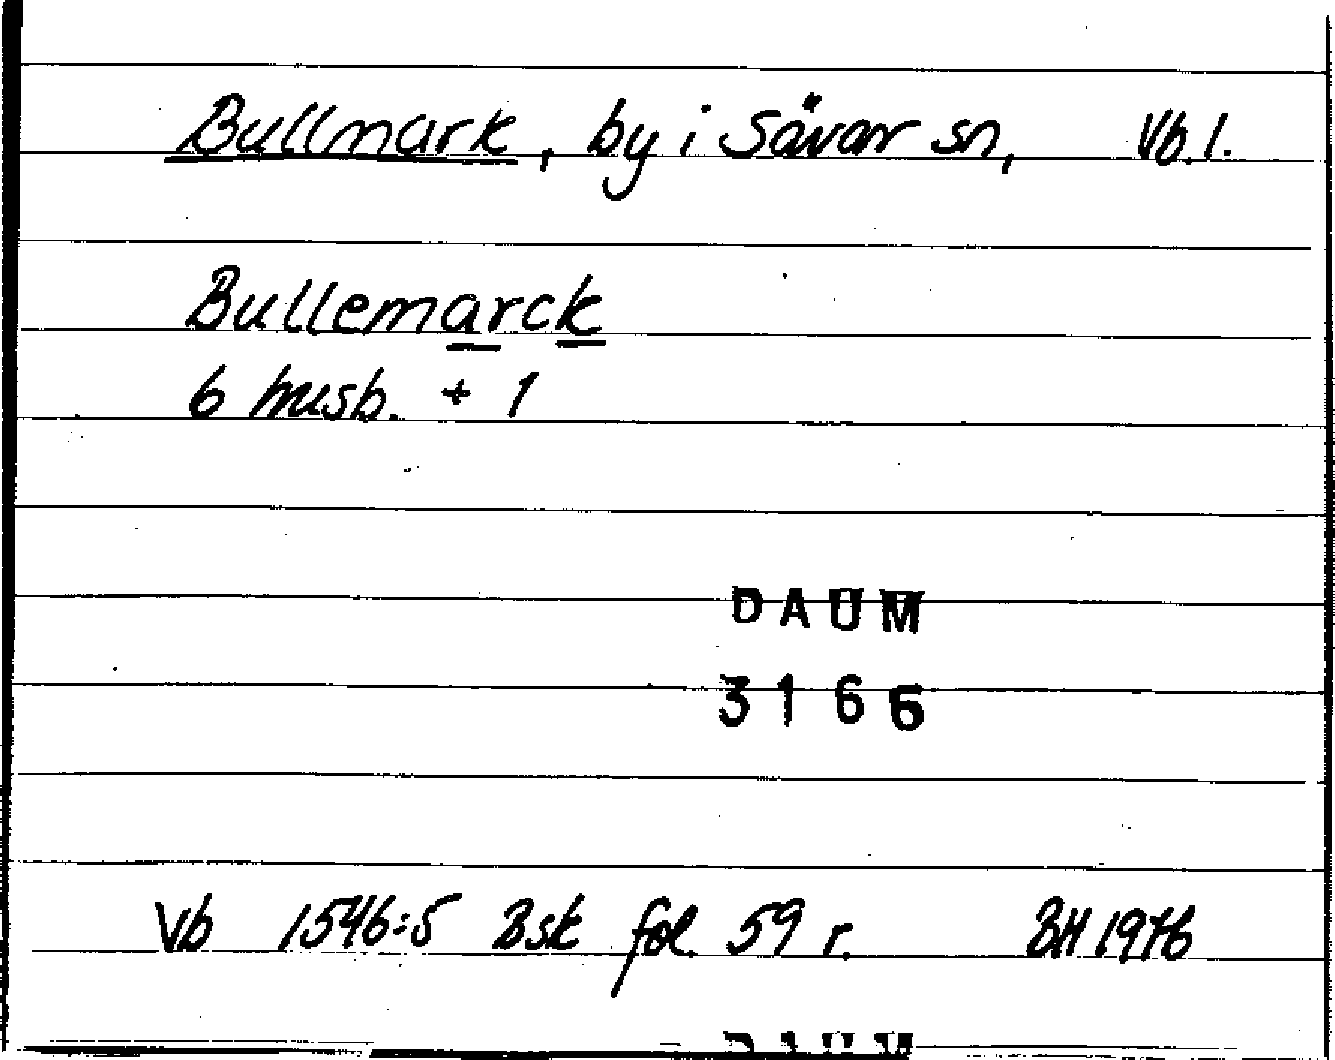 Bullmark, by i Sävar sn, Vb. l.
Bullemarck
6 husb. + 1
DAUM
3166
Vb 1546:5 Bsk fol. 59 r. BH 1976
DAUM